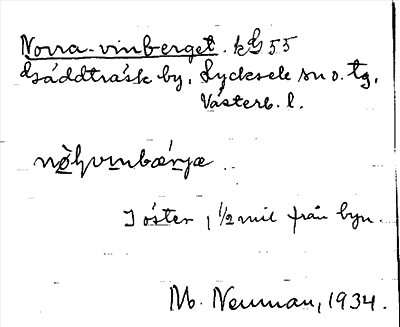 Norra-vinberget. kG 55
Gäddträsk by, Lycksele sn o. tg,
Västerb. l.
nø̀ḥvɩnbær̨jæ
I öster, 1/2 mil från byn.
M. Neuman, 1934.